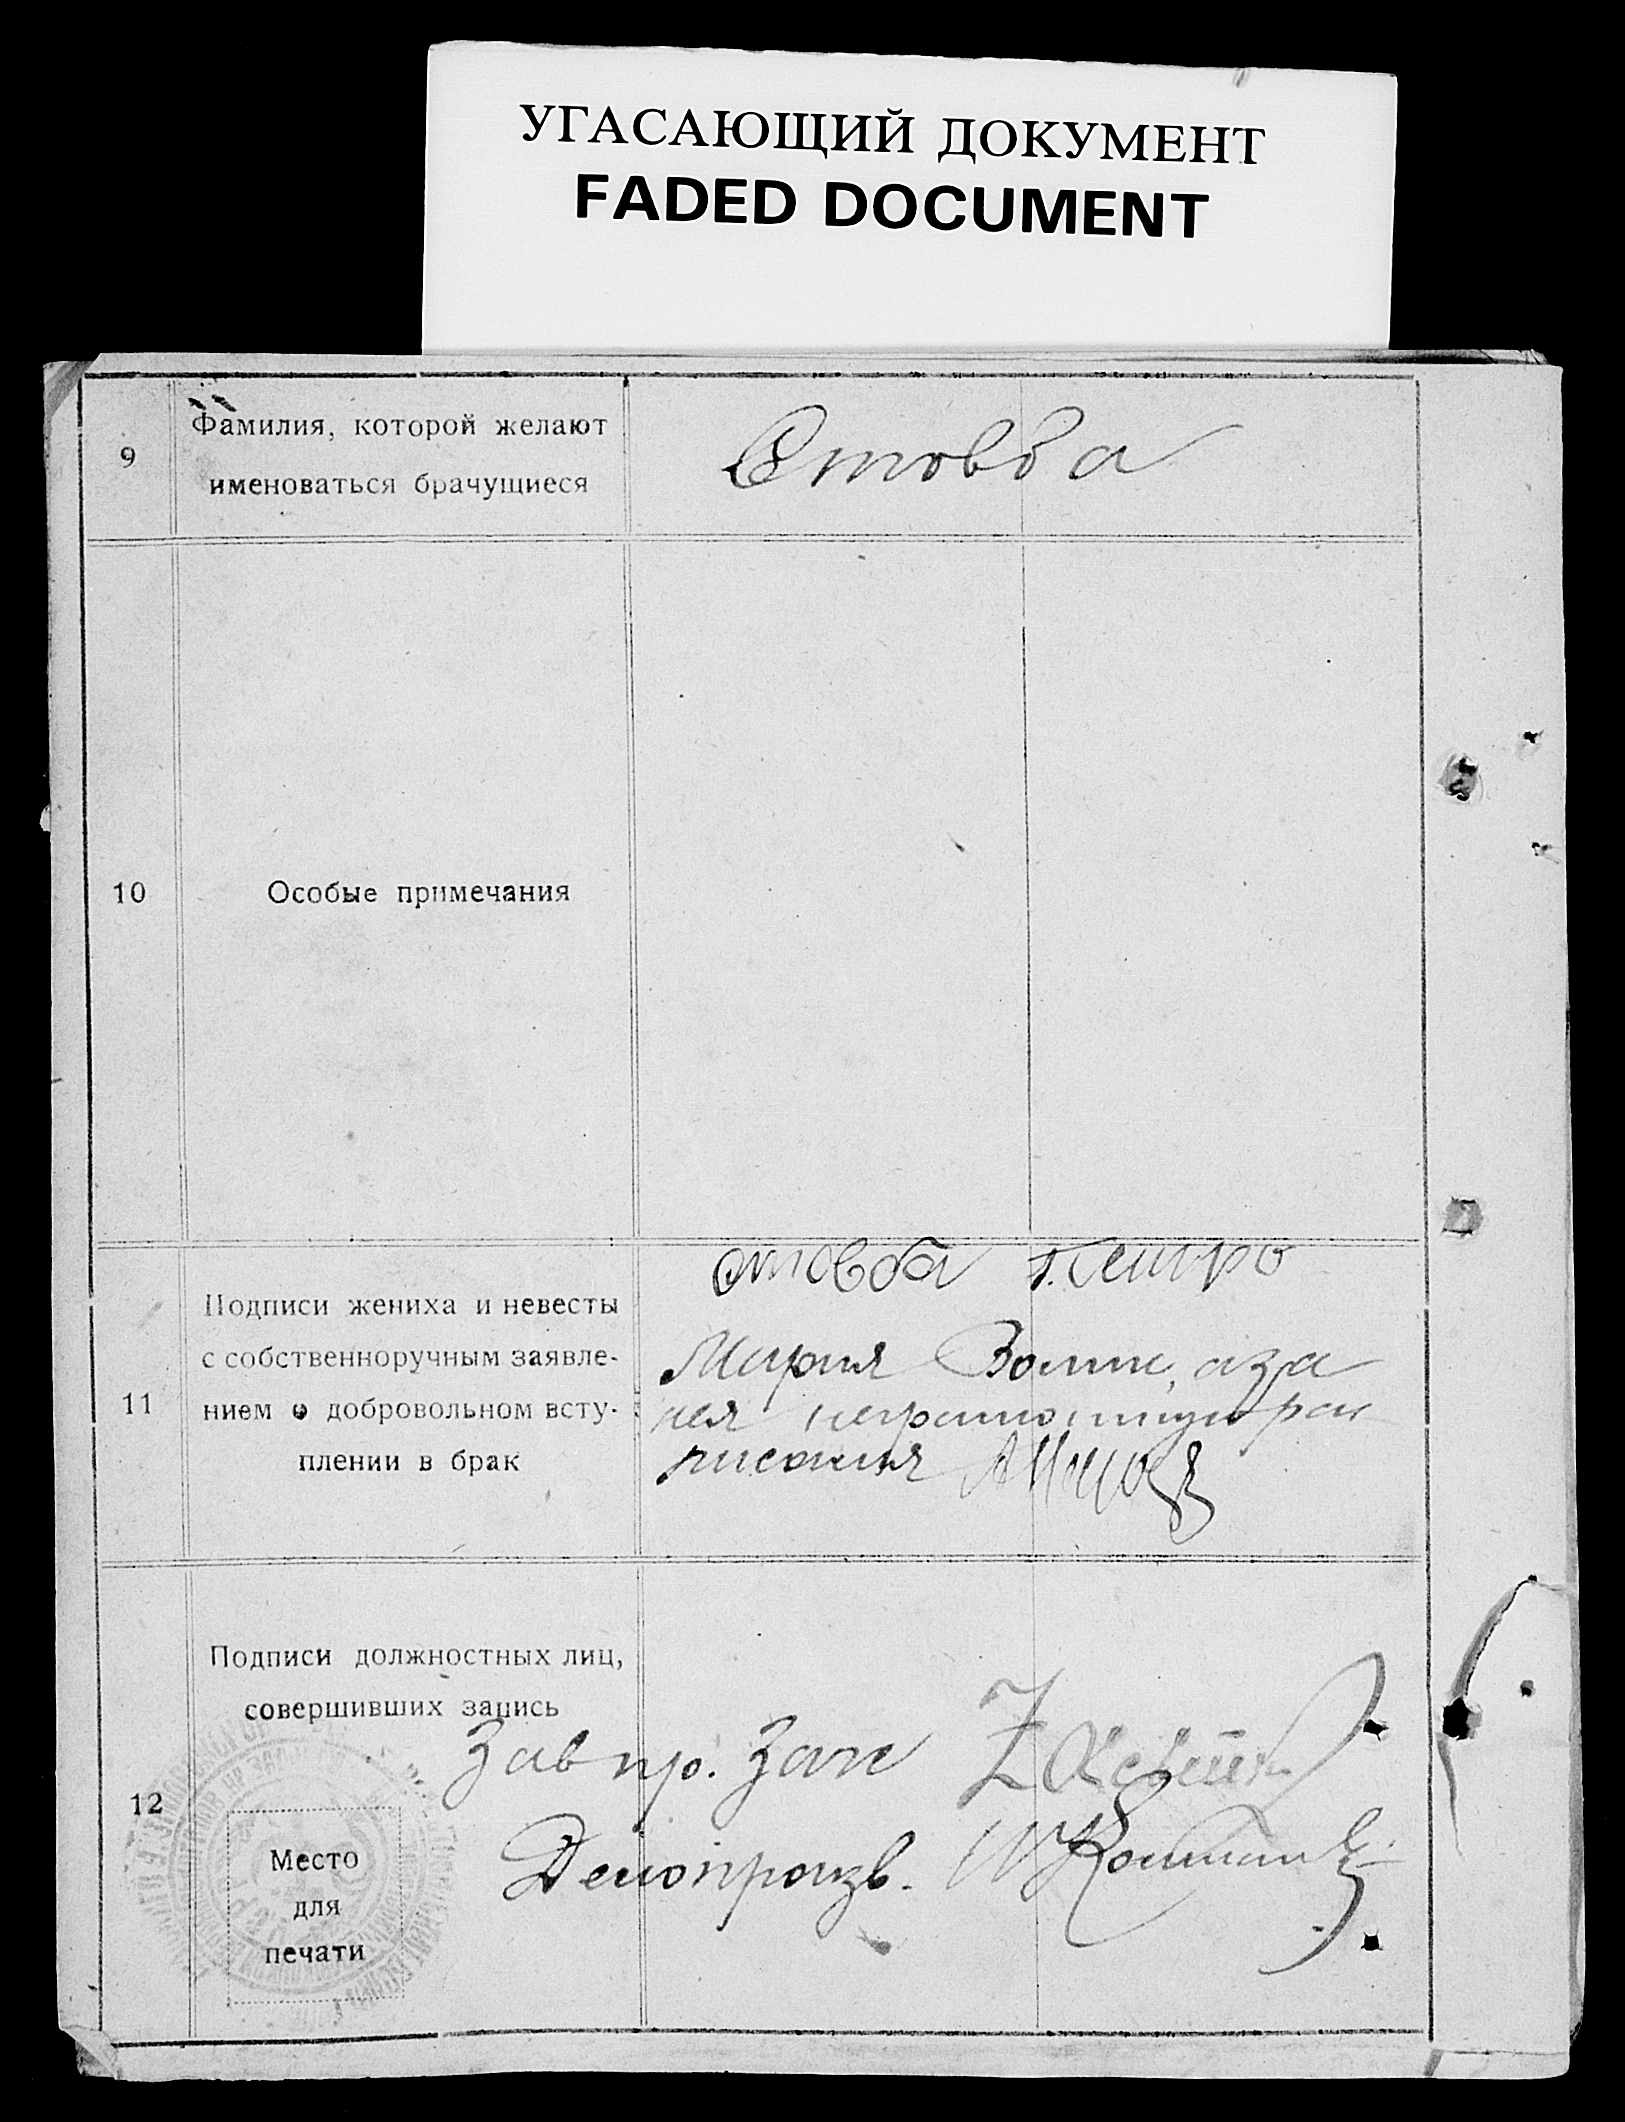 УГАСАЮЩИЙ ДОКУМЕНТ
FADED DOCUMENT
9
Фамилия, которой желают
именоваться брачущиеся
Стовба
10
Особые примечания
11
Подписи жениха и невесты
с собственноручным заявле-
нием о добровольном всту-
плении в брак
Стовба Петро
Мария, а за
нея неграмотную рас
писался
12
Подписи должностных лиц,
совершивших запись
Зав пр. Запс
Делопроизв.
Место
для
печати